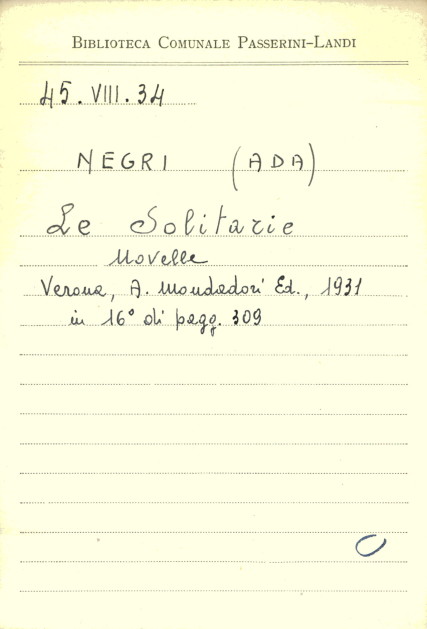 BIBLIOTECA COMUNALE PASSERINI-LANDI
45.VIII.34
NEGRI (ADA)
Le Solitarie
Novelle
Verona, A. Mondadori Ed., 1931
in 16° di pagg. 309